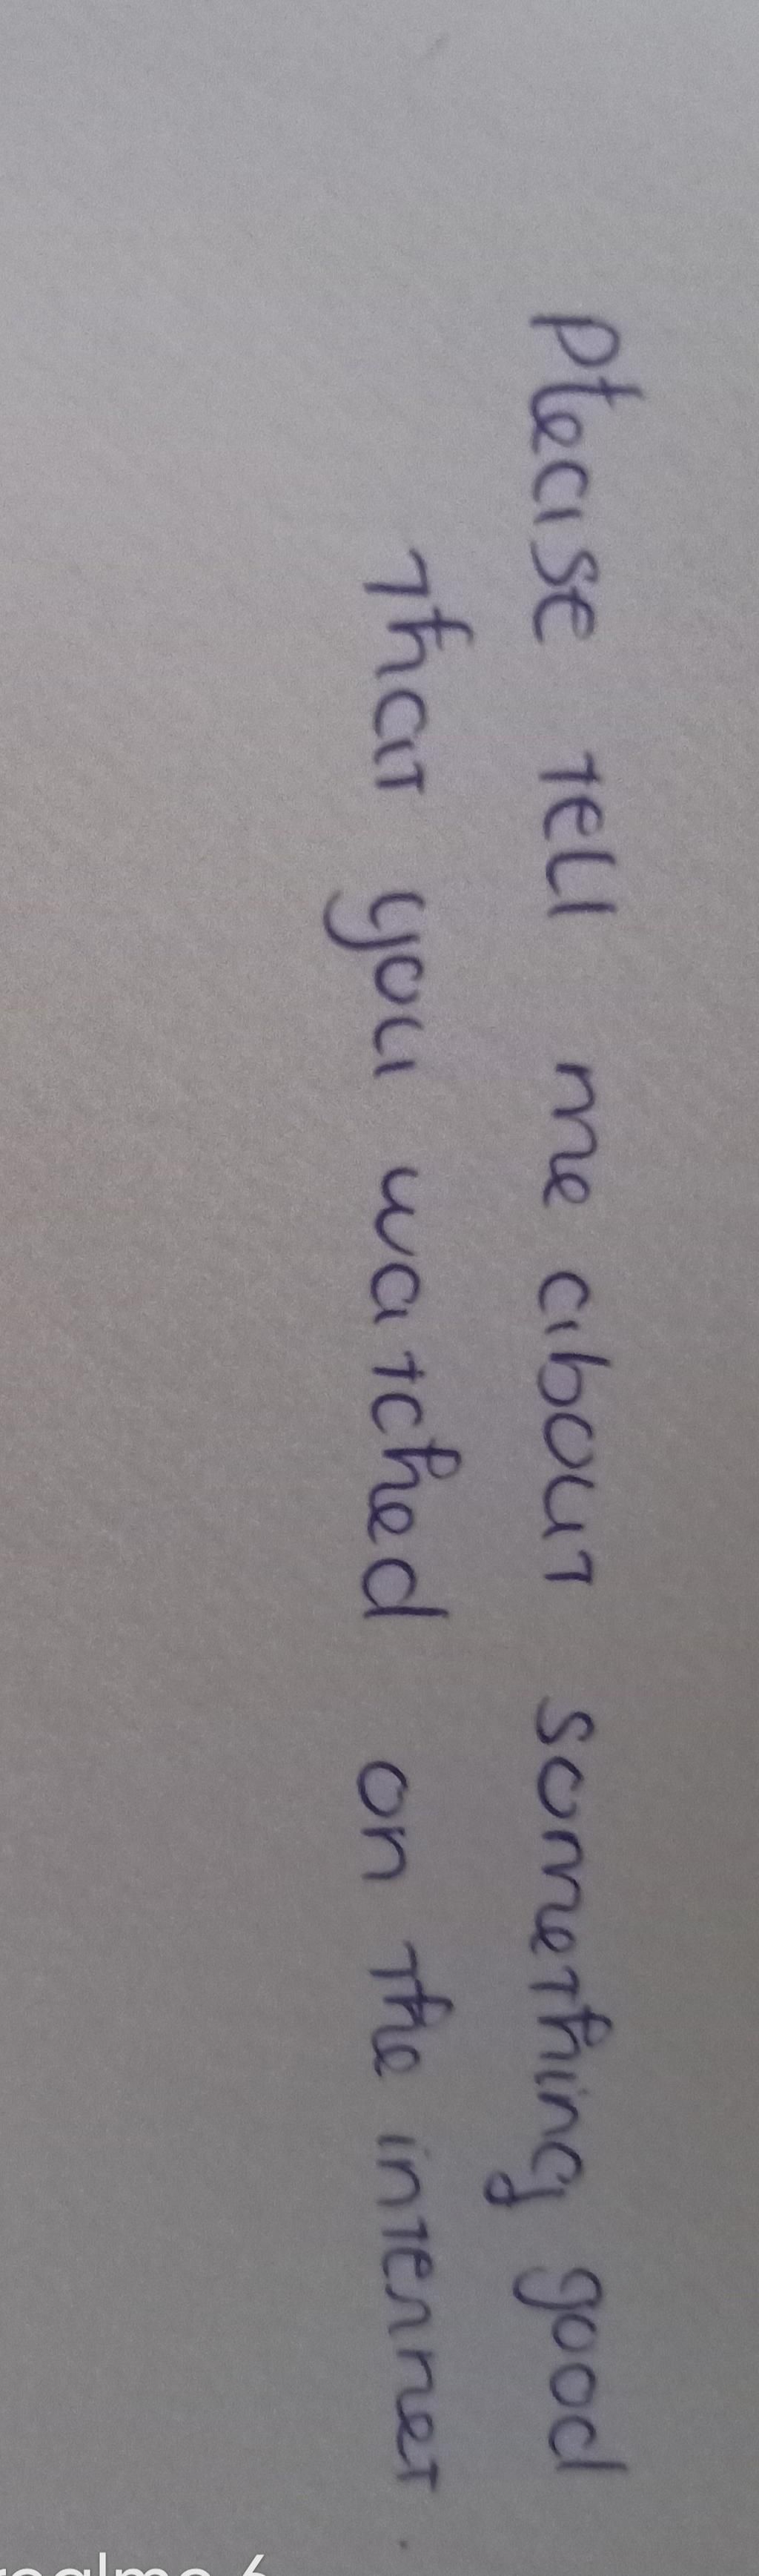 Please tell me about something good
that you watched on the internet.
realme 6